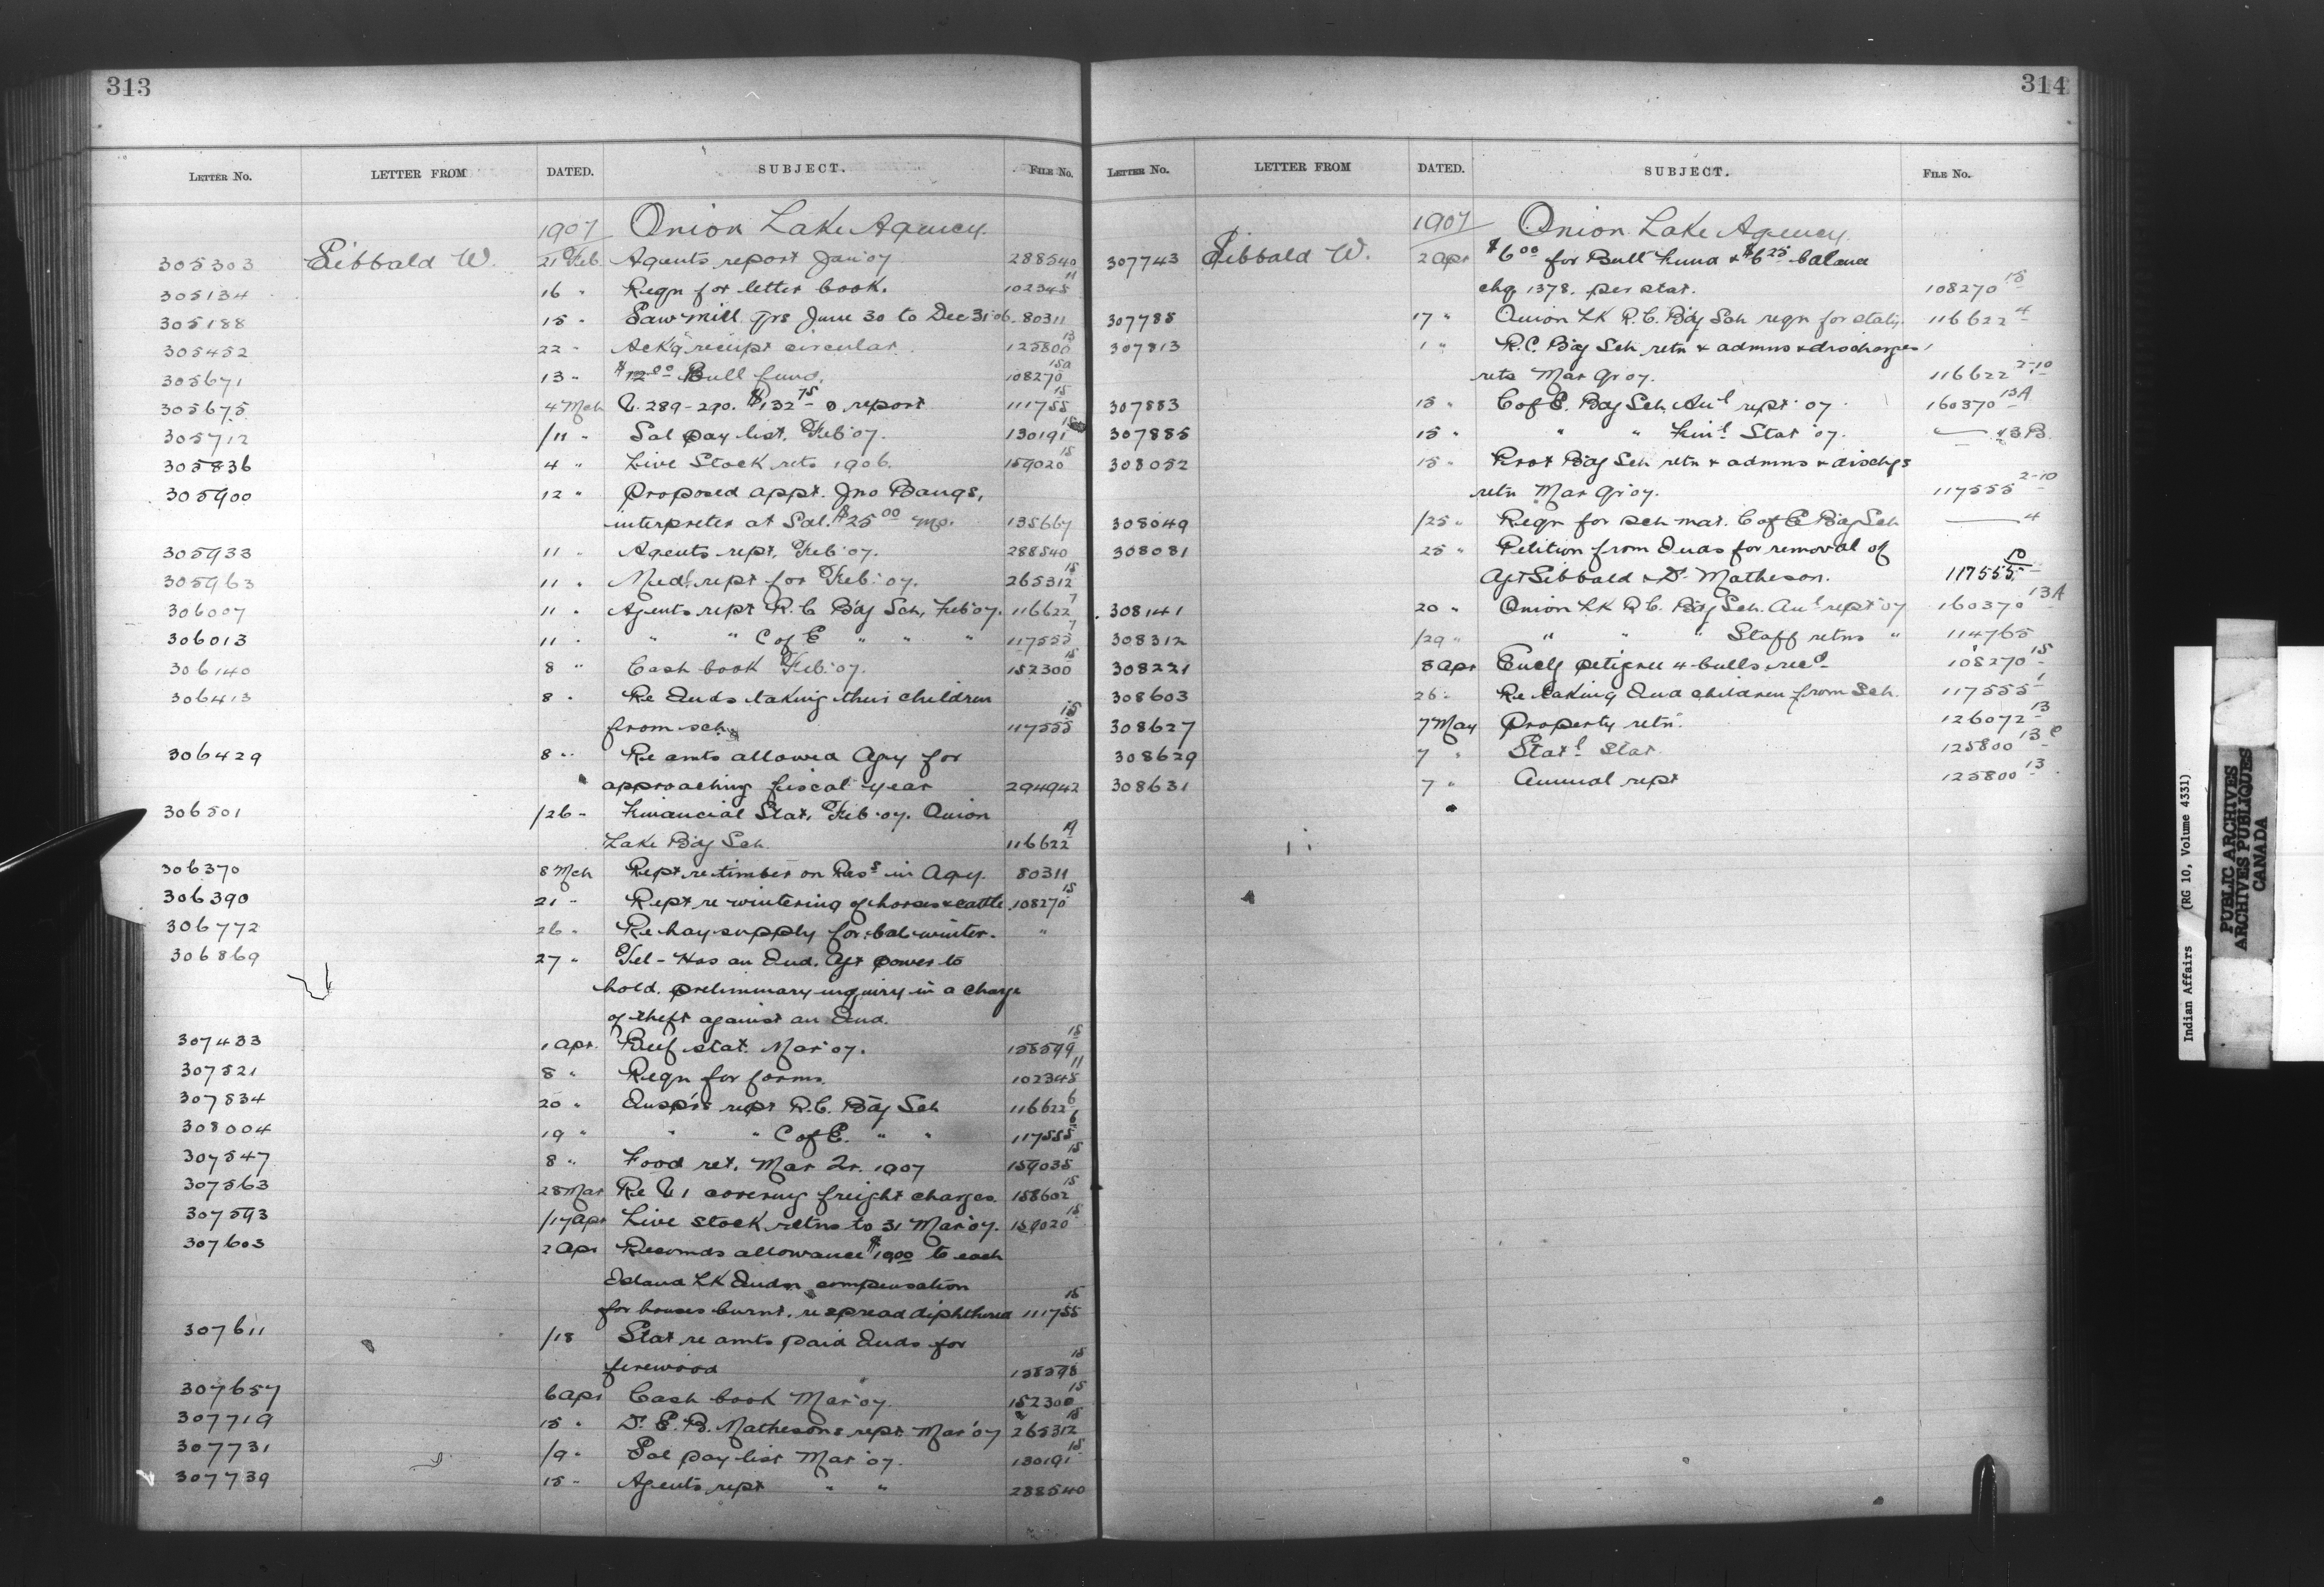 313
LETTER No. LETTER FROM DATED. SUBJECT. FILE No.
1907 Onion Lake Agency
305303 Sibbald W. 21 Feb. Agents report Jan'07 288540
305134 16 " Reqn for letter book. 102345 11
305188 15 " Saw mill qrs June 30 to Dec 31'06. 80311
305452 22 " Ackg receipt circular 125800 13
305671 13 " $12.00 Bull fund. 108270 15a
305675 4 Mch V. 289-290. $132 75 & report 111755 15
305712 /11 " Sal pay list. Feb'07. 130191 15
305836 4 " Live Stock rets 1906. 159020 15
305900 12 " Proposed appt. Jno Bangs,
interpreter at Sal. $25 00 mo. 135667
305933 11 " Agents rept. Feb'07. 288540
305963 11 " Medl rept for Feb'07. 265312 15
306007 11 " Agents rept R.C Bdg Sch, Feb'07. 116622 7
306013 11 " " " C of E " " " 117555 7
306140 8 " Cash book Feb'07. 152300 15
306413 8 " Re Inds taking their children
from sch. 117555 15
306429 8 " Re amts allowed Agy for
approaching fiscal year 294942
306501 /26 " Financial Stat. Feb'07. Onion
Lake Bdg Sch. 116622
306370 8 Mch Rept re timber on Ress in Agy. 80311
306390 21 " Rept re wintering of horses & cattle 108270 15
306772 26 " Re hay supply for bal winter. "
306869 27 " Tel - Has an Ind. Agt power to
hold preliminary inquiry in a charge
of theft against an Ind.
307433 1 Apr. Beef stat. Mar'07. 158599 15
307521 8 " Reqn for forms. 102345 11
307834 20 " Insp's rept R.C. Bdg Sch 116622 6
308004 19 " " " C of E. " " 117555 6
307547 8 " Food ret. Mar Qr. 1907 159035 15
307563 28 Mar Re V 1 covering freight charges. 158602 15
307593 /17 Apr Live stock retns to 31 Mar'07. 159020 15
307603 2 Apr Recomds allowance $19.00 to each
Island Lk Inds compensation
for houses burnt, re spread diphtheria 111755 15
307611 /18 Stat re amts paid Inds for
firewood 158598 15
307657 6 Apr Cash book Mar'07. 152300 15
307719 15 " Dr. E. B. Mathesons rept. Mar'07 265312 15
307731 /9 " Sal pay list Mar'07. 130191 15
307739 15 " Agents rept " " 288540
314
LETTER No. LETTER FROM DATED. SUBJECT. FILE No.
1907 Onion Lake Agency
307743 Sibbald W. 2 Apr $6 00 for Bull Fund & $6 25 balance
chq 1378. per stat. 108270 15
307785 17 " Onion Lk R.C. Bdg Sch reqn for staty. 116622 4
307813 1 " R.C. Bdg Sch retn & admns & discharges
rets Mar Qr 07. 116622 2-10
307883 15 " C of E. Bdg Sch. Anl rept '07 160370 13A
307885 15 " " " Finl Stat '07. " 13B
308052 15 " Prot Bdg Sch retn & admns & dischgs
retn Mar Qr 07. 117555 2-10
308049 /25 " Reqn for sch mat. C of E Bdg Sch " 4
308081 25 " Petition from Inds for removal of
Agt Sibbald & Dr Matheson. 117555 10
308141 20 " Onion Lk R.C. Bdg Sch. Anl rept '07 160370 13A
308312 /29 " " " " Staff retns " 114765
308221 8 Apr Encg petigree 4 bulls recd 108270 15
308603 26 " Re taking Ind children from Sch. 117555 1
308627 7 May Property retn 126072 13
308629 7 " Statl Stat. 125800 13C
308631 7 " Annual rept 125800 13
Indian Affairs (RG 10, Volume 4331)
PUBLIC ARCHIVES
ARCHIVES PUBLIQUES
CANADA